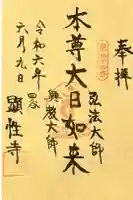 奉拝
本尊大日如来
弘法大師
興教大師
令和六年
六月九日
顕性寺